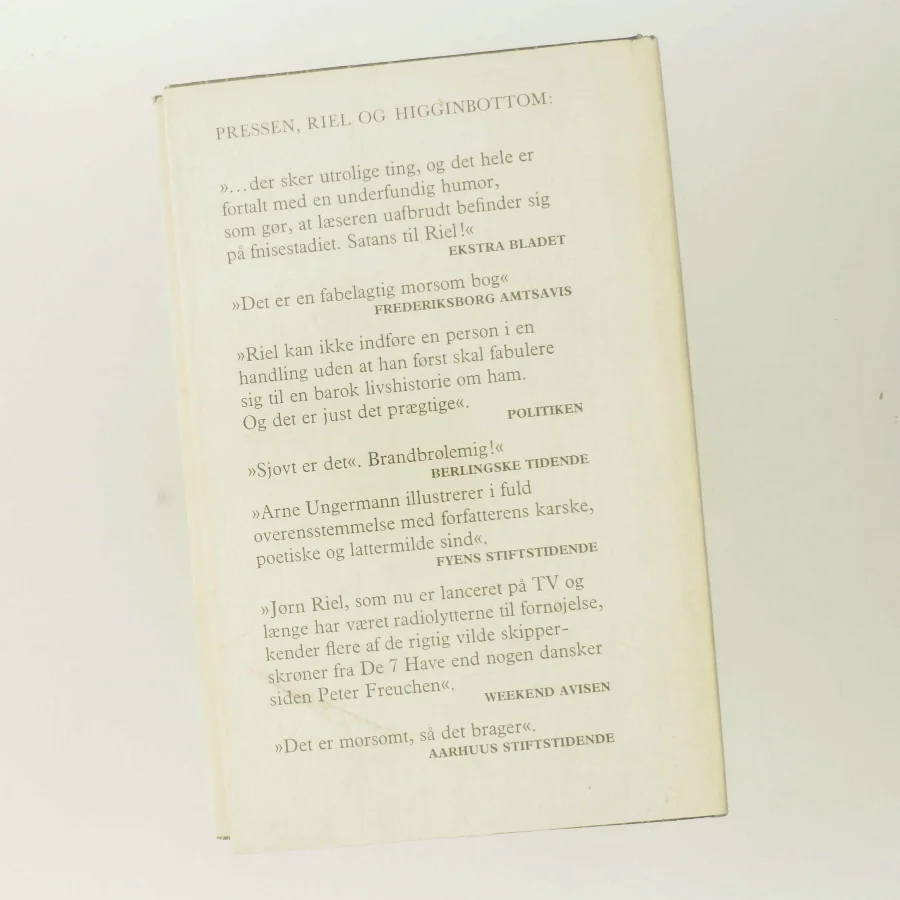 PRESSEN, RIEL OG HIGGINBOTTOM:
»...der sker utrolige ting, og det hele er
fortalt med en underfundig humor,
som gør, at læseren uafbrudt befinder sig
på fnisestadiet. Satans til Riel!«
EKSTRA BLADET
»Det er en fabelagtig morsom bog«
FREDERIKSBORG AMTSAVIS
»Riel kan ikke indføre en person i en
handling uden at han først skal fabulere
sig til en barok livshistorie om ham.
Og det er just det prægtige«.
POLITIKEN
»Sjovt er det«. Brandbrølemig!«
BERLINGSKE TIDENDE
»Arne Ungermann illustrerer i fuld
overensstemmelse med forfatterens karske,
poetiske og lattermilde sind«.
FYENS STIFTSTIDENDE
»Jørn Riel, som nu er lanceret på TV og
længe har været radiolytterne til fornøjelse,
kender flere af de rigtig vilde skipper-
skrøner fra De 7 Have end nogen dansker
siden Peter Freuchen«.
WEEKEND AVISEN
»Det er morsomt, så det brager«.
AARHUUS STIFTSTIDENDE